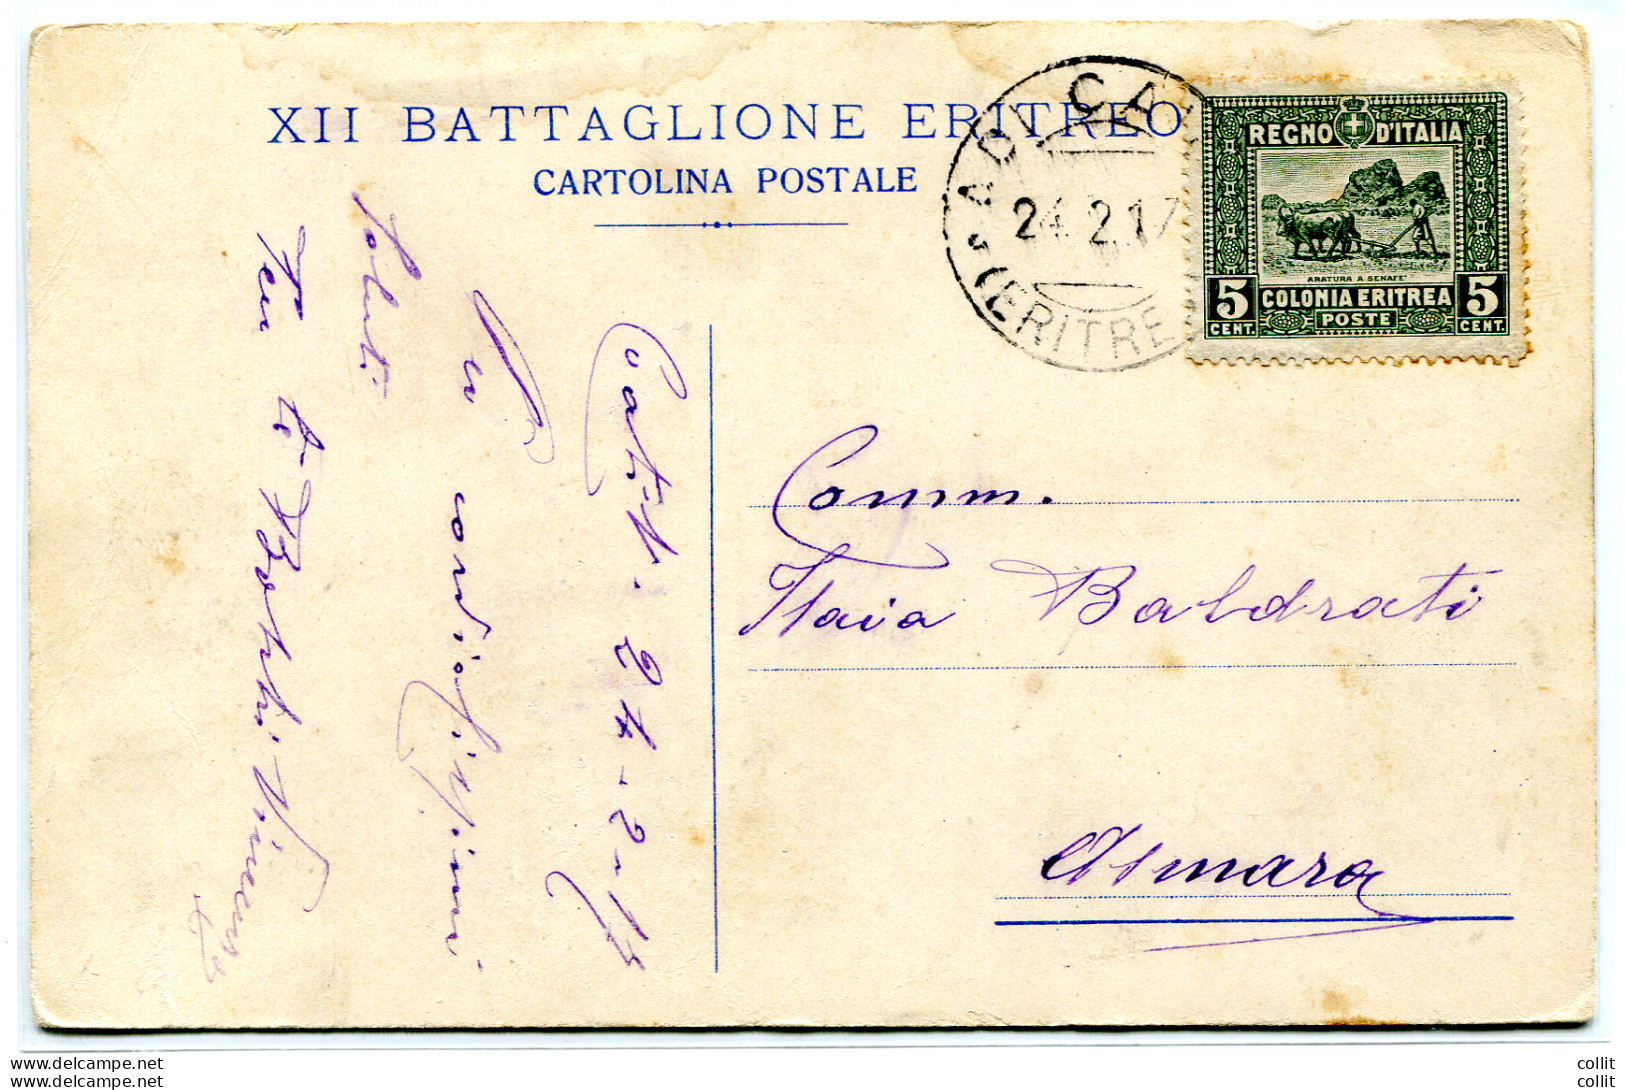 XII BATTAGLIONE ERITREO
CARTOLINA POSTALE
ADI CA
24.2.17
(ERITRE
REGNO D'ITALIA
ARATURA A SENAFE'
5 COLONIA ERITREA 5
CENT. POSTE CENT.
Coatit. 24-2-17
cordialissimi
saluti
Ten te Bottri Vincenzo
Comm.
Isaia Baldrati
Asmara
www.delcampe.net
www.delcampe.net
collit
collit